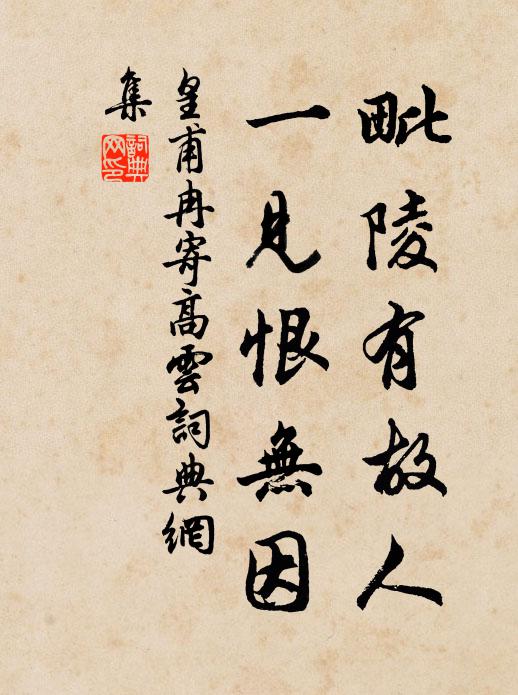 毗陵有故人
一見恨無因
皇甫冉寄高雲詞典網
集
詞典
网印